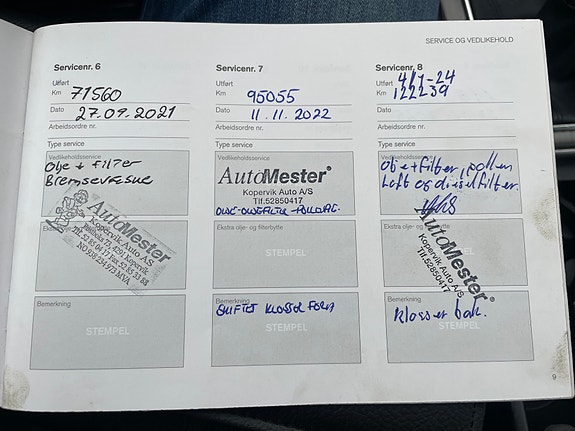 SERVICE OG VEDLIKEHOLD
Servicenr. 6
Utført
Km 71560
Dato 27.09.2021
Arbeidsordre nr.
Type service
Vedlikeholdsservice
Olje + filter
Bremsevæske
AutoMester
Kopervik Auto AS
4250 Kopervik
NO 938 234 973 MVA
Ekstra
Bemerkning
STEMPEL
Servicenr. 7
Utført
Km 95055
Dato 11.11.2022
Arbeidsordre nr.
Type service
AutoMester®
Kopervik Auto A/S
Tlf.52850417
Ekstra olje- og filterbytte
STEMPEL
Bemerkning
SKIFTET KLOSSER FORAN
STEMPEL
Servicenr. 8
Utført 4/7-24
Km 122239
Dato
Arbeidsordre nr.
Type service
Vedlikeholdsservice
Olje + filter, pollen
Luft og dieselfilter.
AutoMester®
Kopervik Auto A/S
Tlf.52850417
Ekstra olje- og filterbytte
Bemerkning
Klosser bak.
9